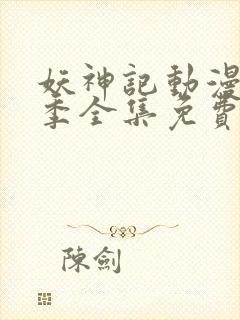 妖神記動漫
季全集免費
陳劍